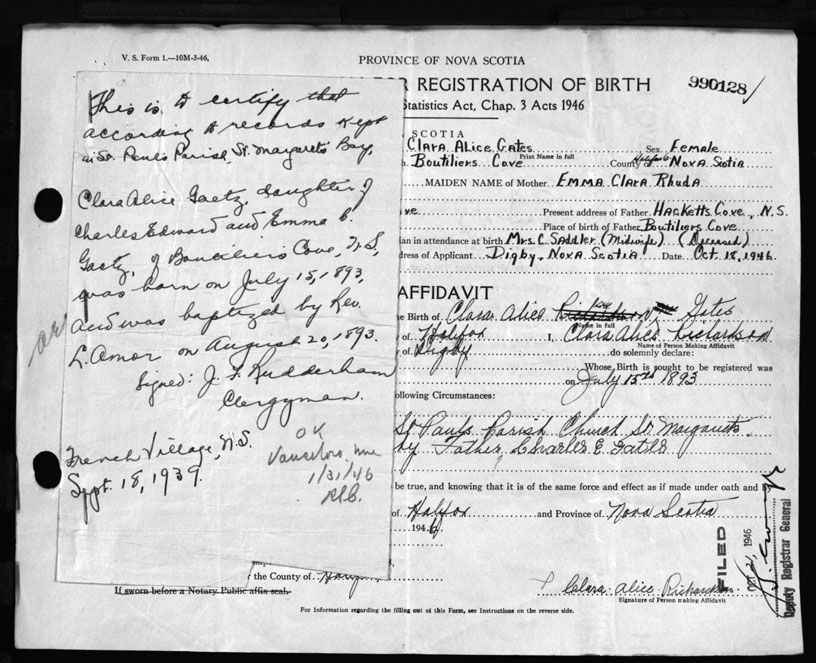 V. S. Form 1.—10M-3-46.
PROVINCE OF NOVA SCOTIA
FOR REGISTRATION OF BIRTH
990128
Statistics Act, Chap. 3 Acts 1946
SCOTIA
CLARA ALICE GATES Sex FEMALE
Print Name in full
Boutiliers Cove County of Halifax NOVA SCOTIA
MAIDEN NAME of Mother EMMA CLARA Rhuda
ove Present address of Father HACKETTS COVE, N.S.
Place of birth of Father Boutiliers Cove
an in attendance at birth MRS. C SADDLER (Midwife) (Deceased)
dress of Applicant DIGBY, NOVA SCOTIA Date Oct. 18, 1946
This is to certify that
according to records kept
in St Pauls Parish, St. Margarets Bay,
Clara Alice Gaetz, daughter of
Charles Edward and Emma C.
Gaetz, of Boutiliers Cove, N.S,
was born on July 15, 1893,
and was baptized by Rev.
L. Amor on August 20, 1893.
Signed: J. F. Rudderham
Clergyman.
French Village, N.S.
Sept. 18, 1939.
OK
Vanceboro, Me
1/31/46
AFFIDAVIT
the Birth of Clara Alice Gates
Name in full
of Halifax I, Clara Alice Richardson
Name of Person Making Affidavit
of Digby do solemnly declare:
Whose Birth is sought to be registered was
on July 15th 1893
ollowing Circumstances:
St Pauls Parish Church St Margarets
by Father, Charles E Gates
be true, and knowing that it is of the same force and effect as if made under oath and by
of Halifax and Province of Nova Scotia
1946
the County of Halifax
If sworn before a Notary Public affix seal.
Clara Alice Richardson
Signature of Person making Affidavit
For Information regarding the filling out of this Form, see Instructions on the reverse side.
FILED
OCT 21, 1946
Deputy Registrar General